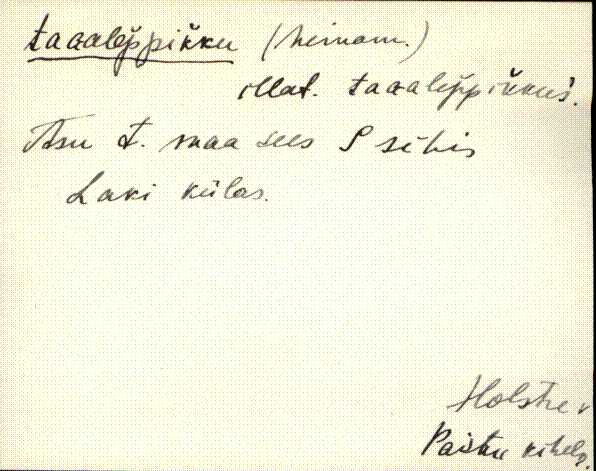 taaalep̆pik̆ku (heinam.)
illat. taaalep̆pik̆kus.
Asu t. maa sees S sihis
Laki külas.
Holstre v
Paistu kihelk.